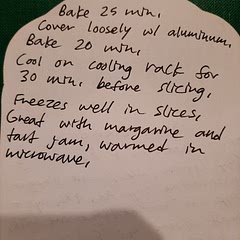 Bake 25 min.
Cover loosely w/ aluminum.
Bake 20 min.
Cool on cooling rack for
30 min. before slicing.
Freezes well in slices.
Great with margarine and
tart jam, warmed in
microwave.